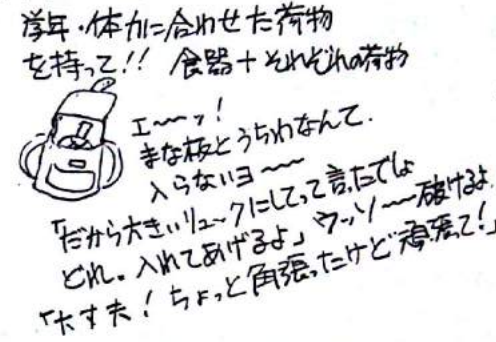 学年・体力に合わせた荷物
を持って!! 食器+それぞれの荷物
エ〜〜ッ!
まな板とうちわなんて.
入らないヨ〜〜
「だから大きいリュックにしてって言ったでしょ
どれ。入れてあげるよ」ウッソ〜〜破けるよ.
「大丈夫!ちょっと角張ったけど頑張って!」